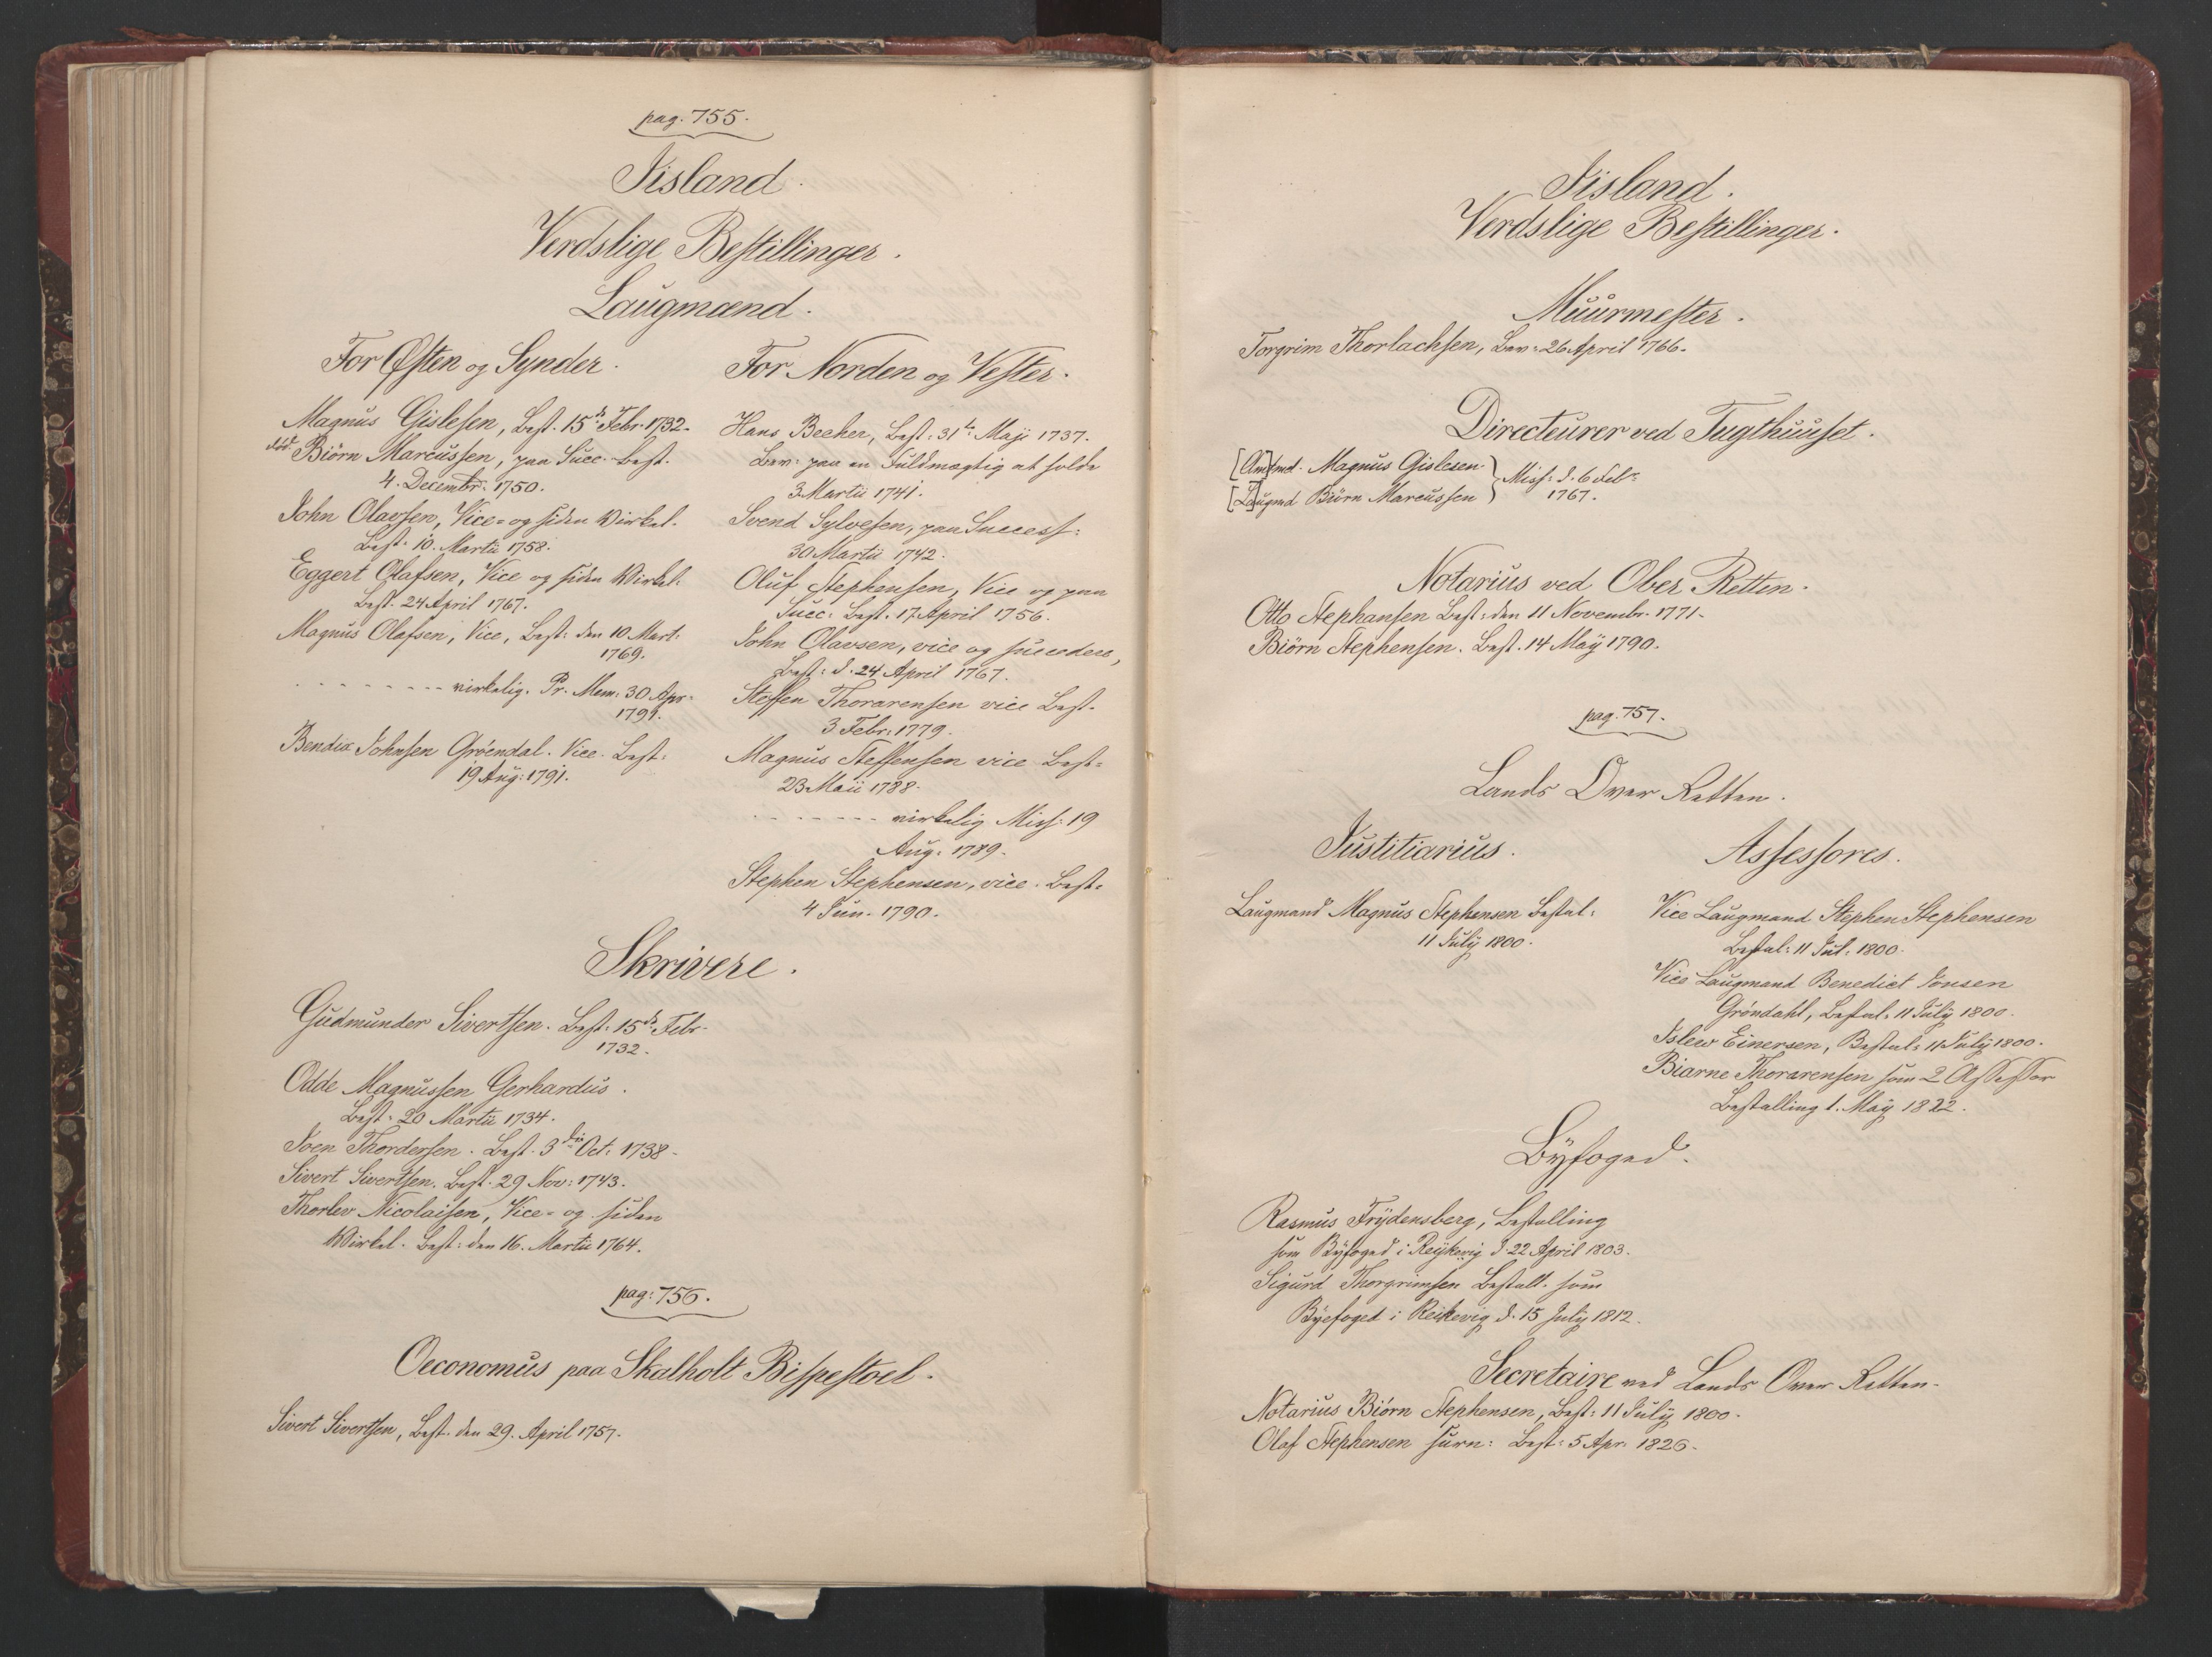 pag. 755.
Iisland.
Verdslige Bestillinger.
Laugmænd.
For Østen og Synder.
Magnus Gislesen, Best. 15de Febr. 1732.
død Biørn Marcussen, paa Succ. Best.
4. Decembr. 1750.
John Olavsen, Vice- og siden Wirkel.
Best. 10. Martii 1758.
Eggert Olafsen, Vice og siden Wirkel.
Best. 24 April 1767.
Magnus Olafsen, Vice, Best: den 10 Mart:
1769.
- - - - - - - - virkelig. Pr. Mem: 30 Apr.
1791.
Bendix Johnsen Grøendal. Vice. Best:
19 Aug: 1791.
For Norden og Vester.
Hans Becher, Best: 31te Maji 1737.
Bev: paa en Fuldmægtig at holde
3 Martii 1741.
Svend Sylvesen, paa Success:
30 Martii 1742.
Oluf Stephensen, Vice og paa
Succ: Best. 17. April 1756.
John Olavsen, vice og succedere,
Best: d. 24 April 1767.
Steffen Thorarensen vice Best.
3 Febr: 1779.
Magnus Steffensen vice Best:
23 Maii 1788.
- - - - - - - virkelig Miss: 19
Aug: 1789.
Stephen Stephensen, vice. Best:
4 Jun. 1790.
Skrivere.
Gudmunder Sivertsen. Best: 15de Febr.
1732.
Odde Magnussen Gerhardus.
Best: 20 Martii 1734.
Joen Thordersen. Best. 3die Oct: 1738.
Sivert Sivertsen. Best. 29 Nov: 1743.
Thorlev Nicolaisen, Vice- og siden
Wirkel. Best: den 16. Martii 1764.
pag: 756.
Oeconomus paa Skalholt Bispestoel.
Sivert Sivertsen, Best. den 29. April 1757.
Iisland.
Verdslige Bestillinger.
Muurmester.
Torgrim Thorlachsen, Bev: 26 April 1766.
Directeurer ved Tugthuuset.
[Am]tmd. Magnus Gislesen } Miss: d. 6 Febr:
[L]augmd Biørn Marcussen } 1767.
Notarius ved Ober Retten.
Otto Stephansen Best: den 11 Novembr. 1771.
Biørn Stephensen. Best. 14 May 1790.
pag. 757.
Lands Over Retten.
Justitiarius.
Laugmand Magnus Stephensen Bestal:
11 July 1800.
Assessores.
Vice Laugmand Stephen Stephensen
Bestal: 11 Jul: 1800.
Vice Laugmand Benedict Jonsen
Grøndahl, Bestal: 11 July 1800.
Islew Einersen, Bestal: 11 July 1800.
Biarne Thorarensen som 2 Assessor
Bestalling 1. May 1822.
Byfoged.
Rasmus Frydensberg, Bestalling
som Byfoged i Reykevig d. 22 April 1803.
Sigurd Thorgrimsen Bestall. som
Byefoged i Reikevig d. 15 July 1812.
Secretaire ved Lands Over Retten.
Notarius Biørn Stephensen, Best: 11 July 1800.
Olaf Stephensen surn: Best: 5 Apr. 1826.